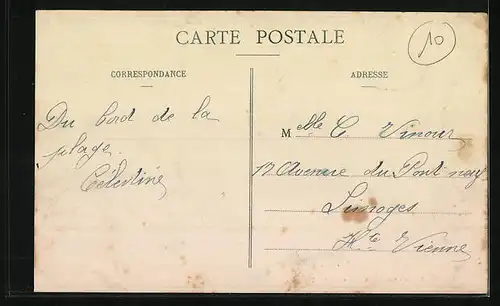 CARTE POSTALE
10
CORRESPONDANCE
Du bord de la
plage.
Célestine
ADRESSE
Melle C Vinour
17 Avenue du Pont neuf
Limoges
Hte Vienne